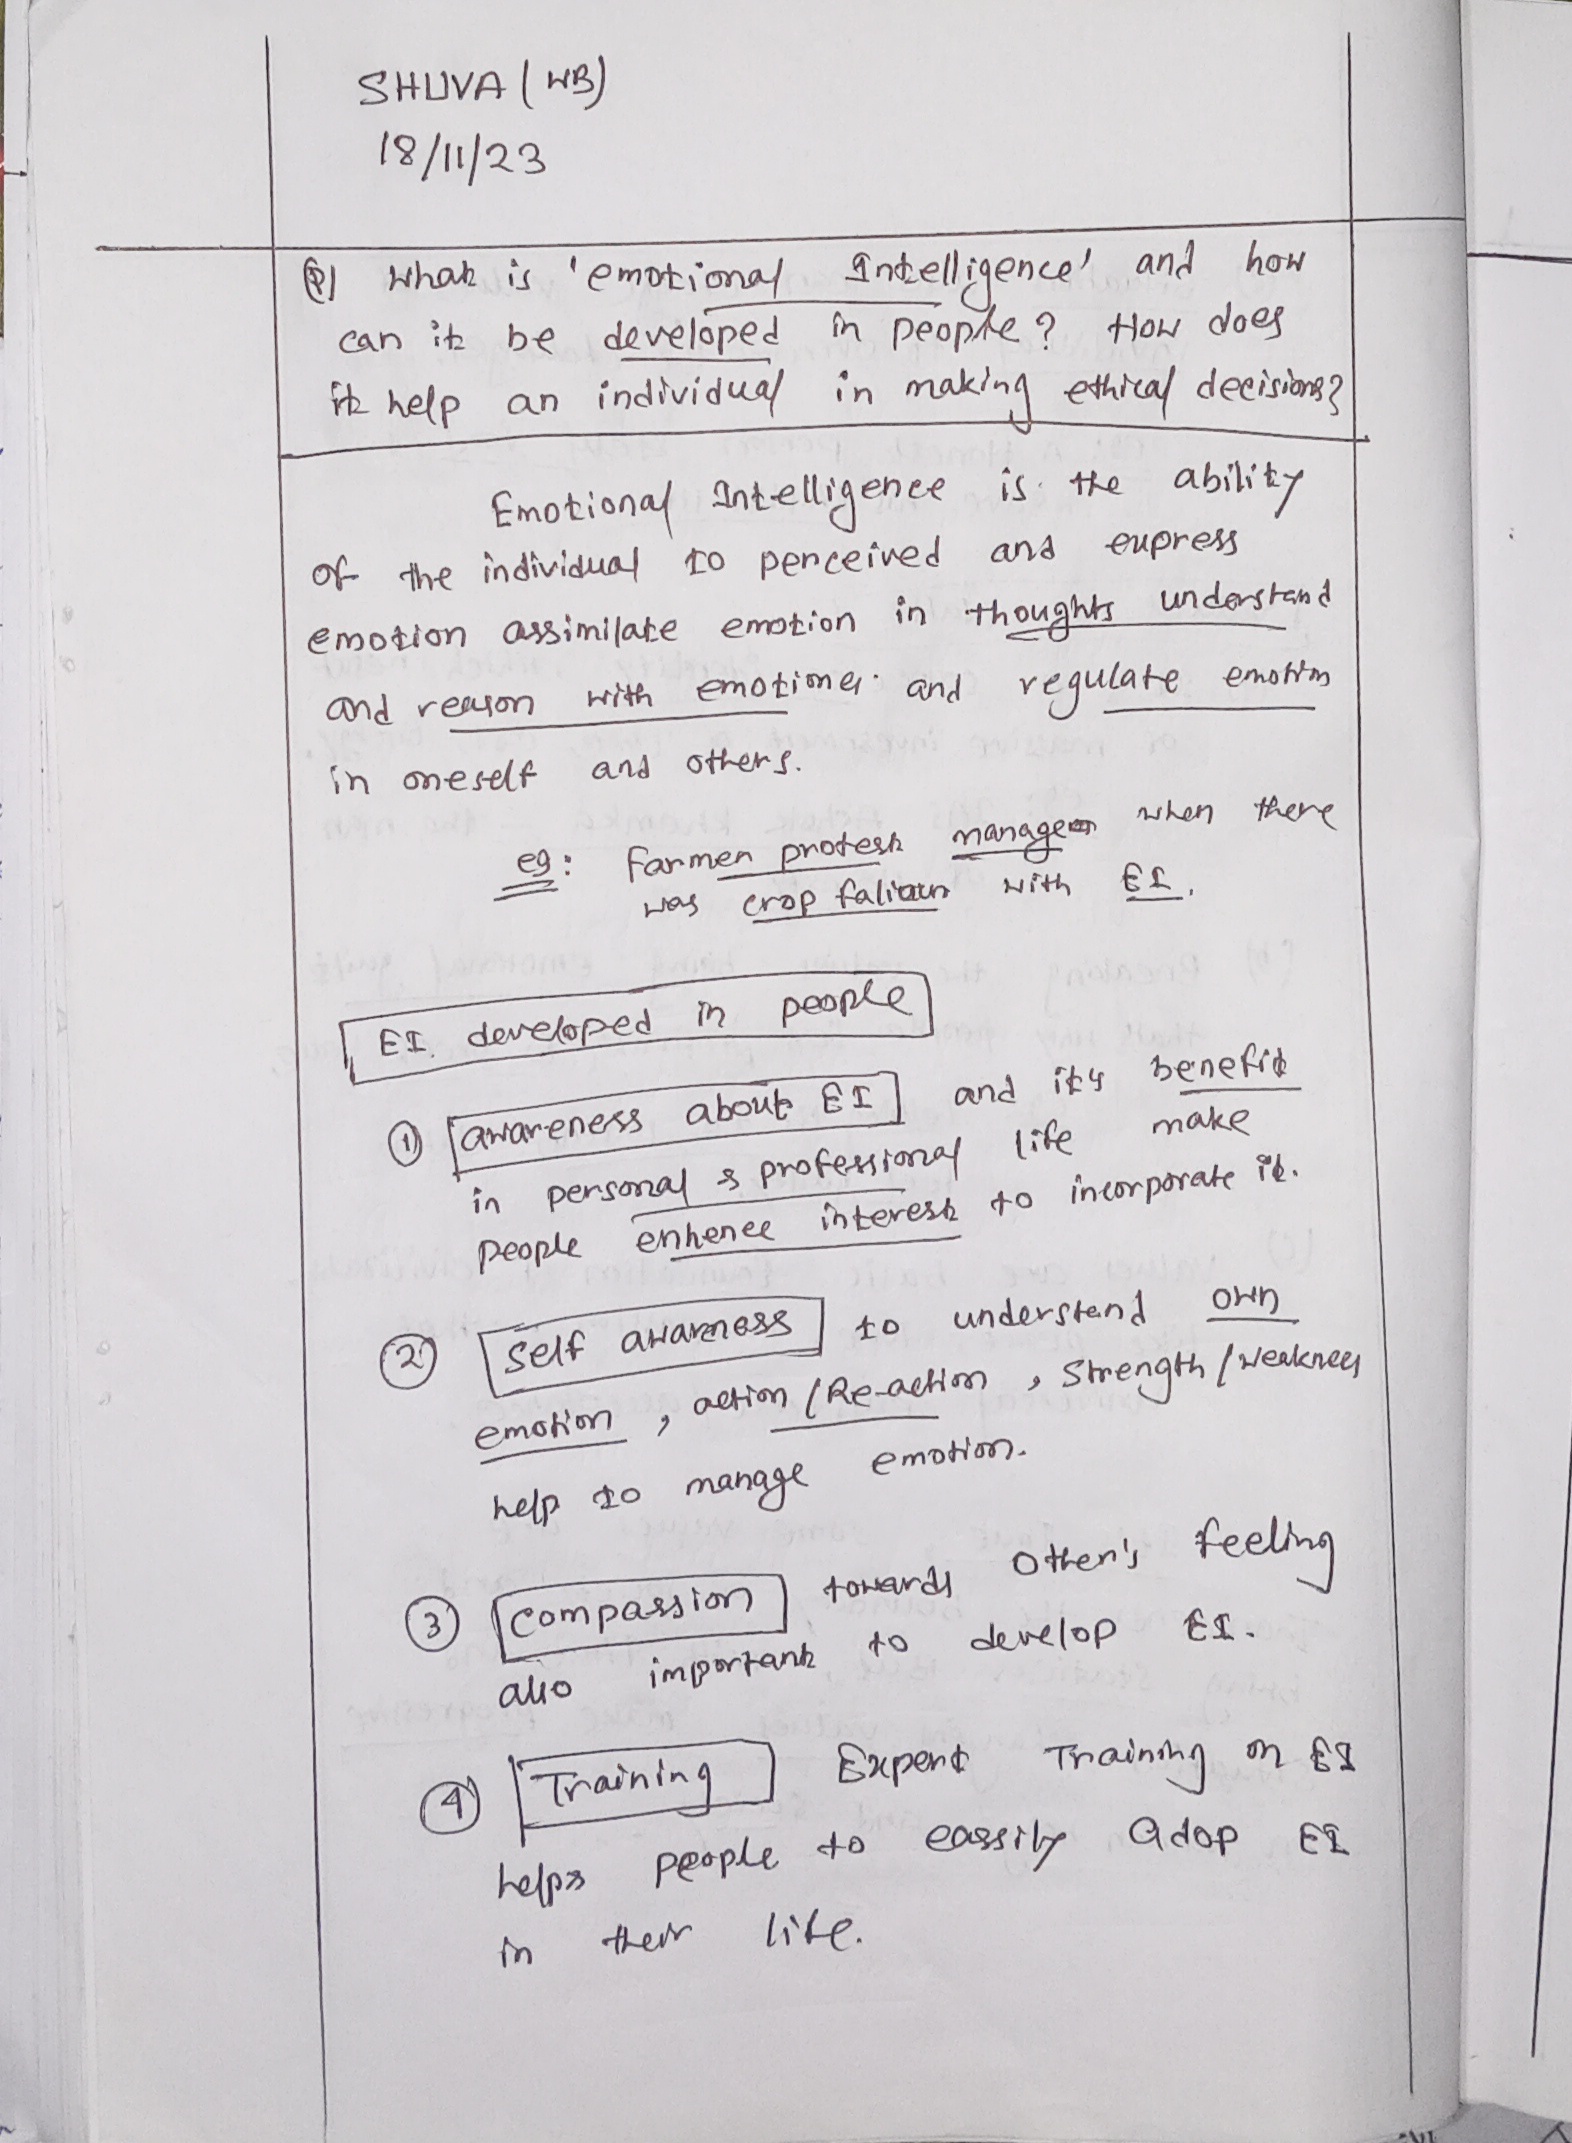 SHUVA (WB)
18/11/23
Q) What is 'emotional Intelligence' and how
can it be developed in people? How does
it help an individual in making ethical decisions?
Emotional Intelligence is the ability
of the individual to perceived and express
emotion assimilate emotion in thoughts understand
and reason with emotiones and regulate emotion
in oneself and others.
eg: farmer protest manage when there
was crop with EI.
EI. developed in people
① awareness about EI and its benefit
in personal & professional life make
people enhence interest to incorporate it.
② Self awarness to understand own
emotion, action/Re-action, Strength/weakness
help to manage emotion.
③ compassion towards other's feeling
also important to develop EI.
④ Training Expert Training on EI
helps people to eassily adop EI
in their life.